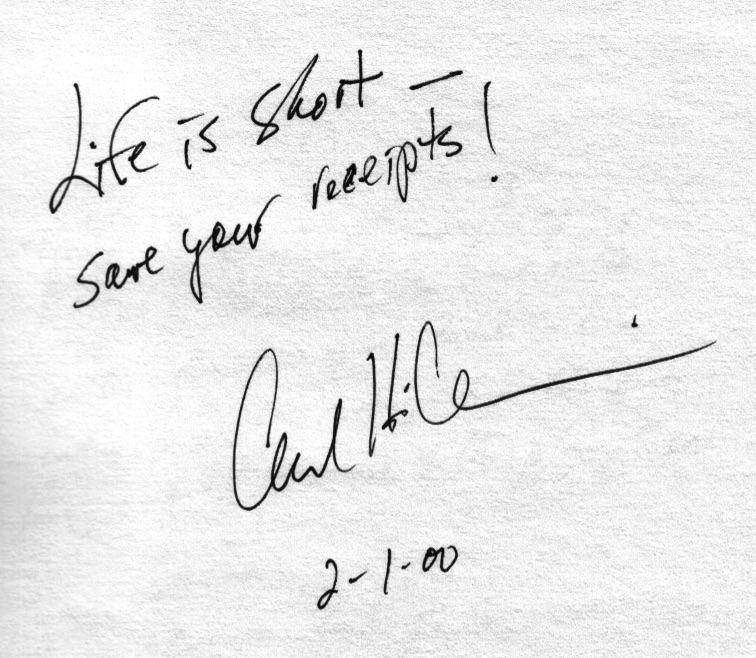 Life is short —
save your receipts!
Carl Hiaasen
2-1-00